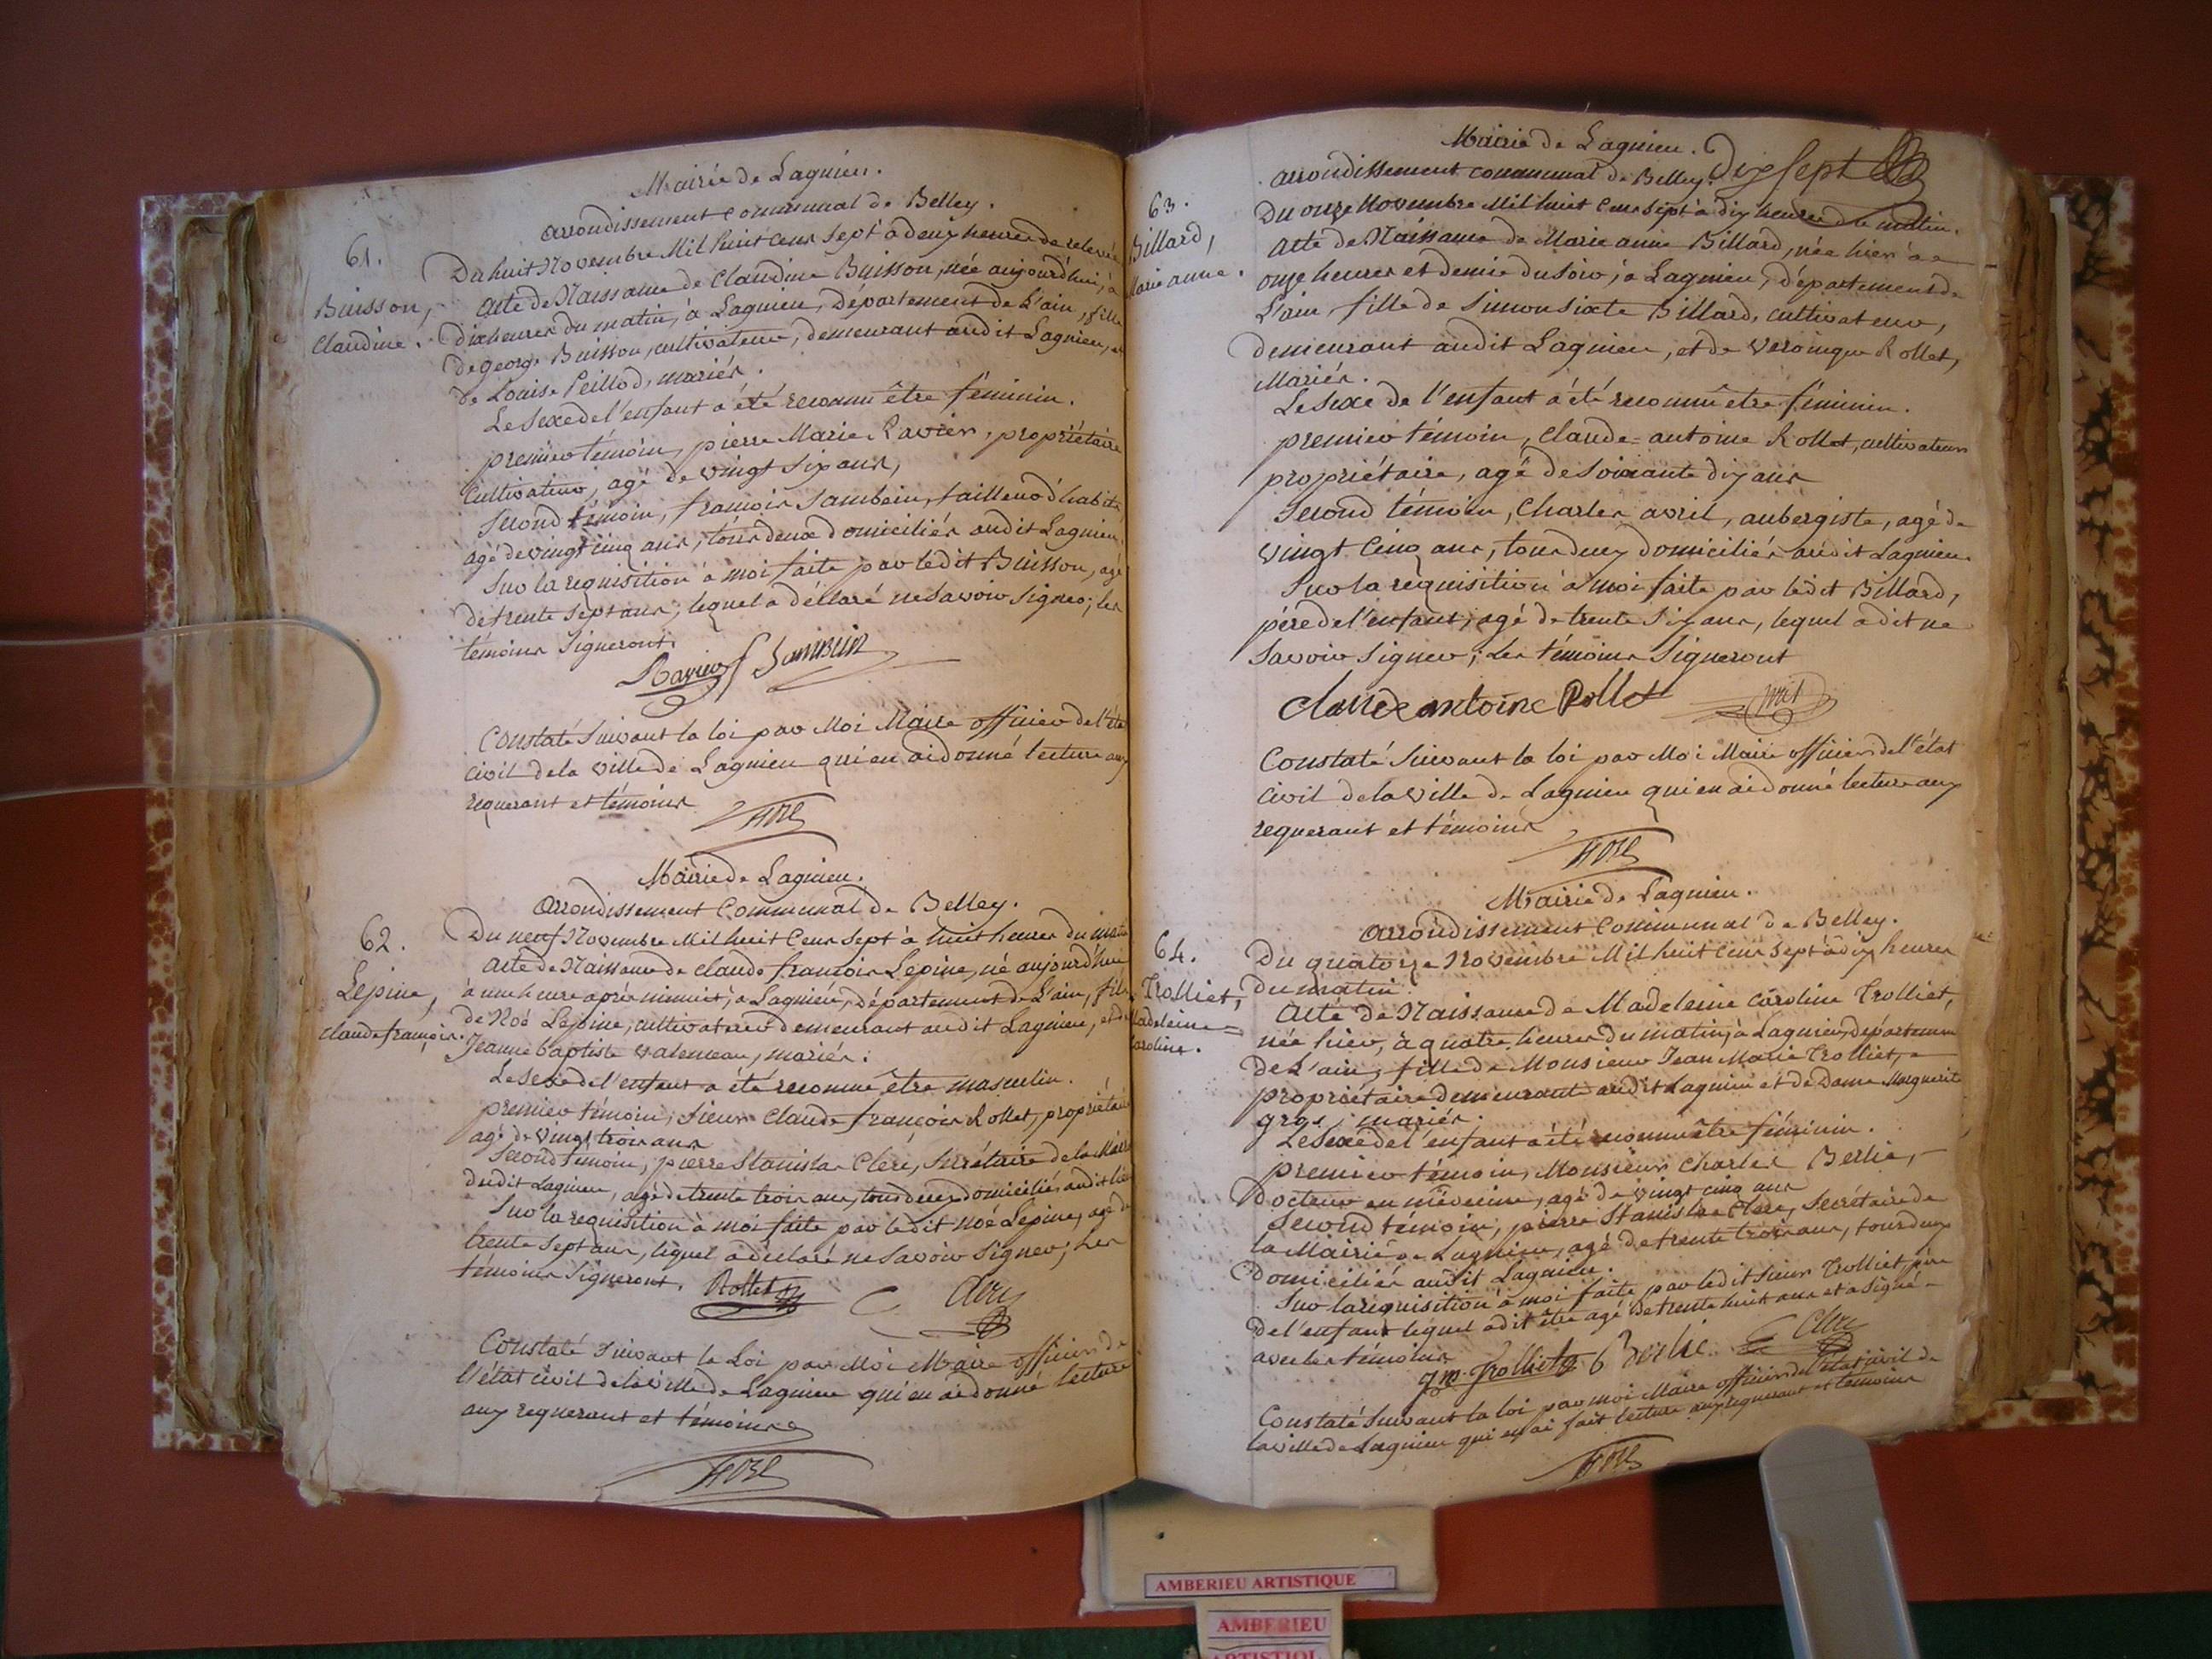 Mairie de Lagnieu.
arrondissement communal de Belley.
61.
Buisson,
Claudine.
Du huit Novembre Mil huit cens sept à deux heures de relevée
acte de Naissance de Claudine Buisson, née aujourd'hui, à
dix heures du matin, à Lagnieu, Département de L'ain, fille
de george Buisson, cultivateur, demeurant audit Lagnieu, et
de Louise Peillod, mariés.
Le Sexe de l'enfant a été reconnu être féminin.
premier témoin, pierre Marie Ravier, propriétaire
Cultivateur, agé de vingt six ans,
Second témoin, françois Sambein, tailleur d'habits
agé de vingt cinq ans, tous deux domiciliés audit Lagnieu.
Sur la requisition à moi faite par ledit Buisson, agé
de trente sept ans, lequel a déclaré ne Savoir Signer; les
témoins Signeront.
Ravier f Sambein
Constaté Suivant la loi par Moi Maire officier de l'état
civil de la ville de Lagnieu qui en ai donné lecture aux
requerant et témoins
Mairie de Lagnieu.
arrondissement Communal de Belley.
62.
Lepine,
claude françois.
Du neuf Novembre Mil huit Cens sept à huit heures du matin
acte de Naissance de claude françois Lepine, né aujourd'hui
à une heure après minuit, à Lagnieu, département de L'ain, fils
de Noé Lepine, cultivateur demeurant audit Lagnieu, et de
Jeanne baptiste, mariés.
Le Sexe de l'enfant a été reconnu être masculin.
premier témoin, Sieur Claude françois Rollet, propriétaire
agé de vingt trois ans
Second témoin, pierre Stanislas Clerc, Secrétaire de la Mairie
dudit Lagnieu, agé de trente trois ans, tous deux domiciliés audit lieu
Sur la requisition à moi faite par ledit Noé Lepine, agé de
trente Sept ans, lequel a déclaré ne Savoir Signer; Les
témoins Signeront. Rollet Clerc
Constaté Suivant la Loi par Moi Maire officier de
l'état civil de la ville de Lagnieu qui en ai donné lecture
aux requerant et témoins
Mairie de Lagnieu.
arrondissement communal de Belley. Dix Sept
63.
Billard,
Marie anne.
Du onze Novembre Mil huit Cens Sept à dix heures du matin.
acte de Naissance de Marie anne Billard, née hier à
onze heures et demie du Soir, à Lagnieu, département de
L'ain, fille de Simon Sixte Billard, cultivateur,
demeurant audit Lagnieu, et de veronique Rollet,
Mariés.
Le Sexe de l'enfant a été reconnu etre féminin.
premier témoin, Claude=antoine Rollet, cultivateur
propriétaire, agé de Soixante dix ans
Second témoin, Charles avril, aubergiste, agé de
vingt Cinq ans, tous deux domiciliés audit Lagnieu.
Sur la requisition à Moi faite par ledit Billard,
père de l'enfant, agé de trente Six ans, lequel a dit ne
Savoir Signer; Les témoins Signeront
claude antoine Rollet
Constaté Suivant la loi par Moi Maire officier de l'état
civil de la ville de Lagnieu qui en ai donné lecture aux
requerant et témoins
Mairie de Lagnieu.
arrondissement Communal de Belley.
64.
Trolliet,
Madeleine=
Caroline.
Du quatorze Novembre Mil huit Cens Sept à dix heures
Du matin
acte de Naissance de Madeleine Caroline Trolliet,
née hier, à quatre heures du matin, à Lagnieu, département
de L'ain, fille de Monsieur Jean Marie Trolliet,
propriétaire demeurant audit Lagnieu et de Dame Marguerite
gros, mariés.
Le Sexe de l'enfant a été reconnu être féminin.
premier témoin, Monsieur Charles Berlie,
Docteur en médecine, agé de vingt cinq ans
Second témoin, pierre Stanislas Clerc, Secrétaire de
la Mairie de Lagnieu, agé de trente trois ans, tous deux
domiciliés audit Lagnieu.
Sur la requisition à moi faite par ledit Sieur Trolliet père
de l'enfant lequel a dit être agé de trente huit ans et a Signé
avec les témoins
J. m. Trolliet Berlie Clerc
Constaté Suivant la loi par moi Maire officier de l'état civil de
la ville de Lagnieu qui en ai fait lecture aux requerant et témoins
AMBERIEU ARTISTIQUE
AMBERIEU